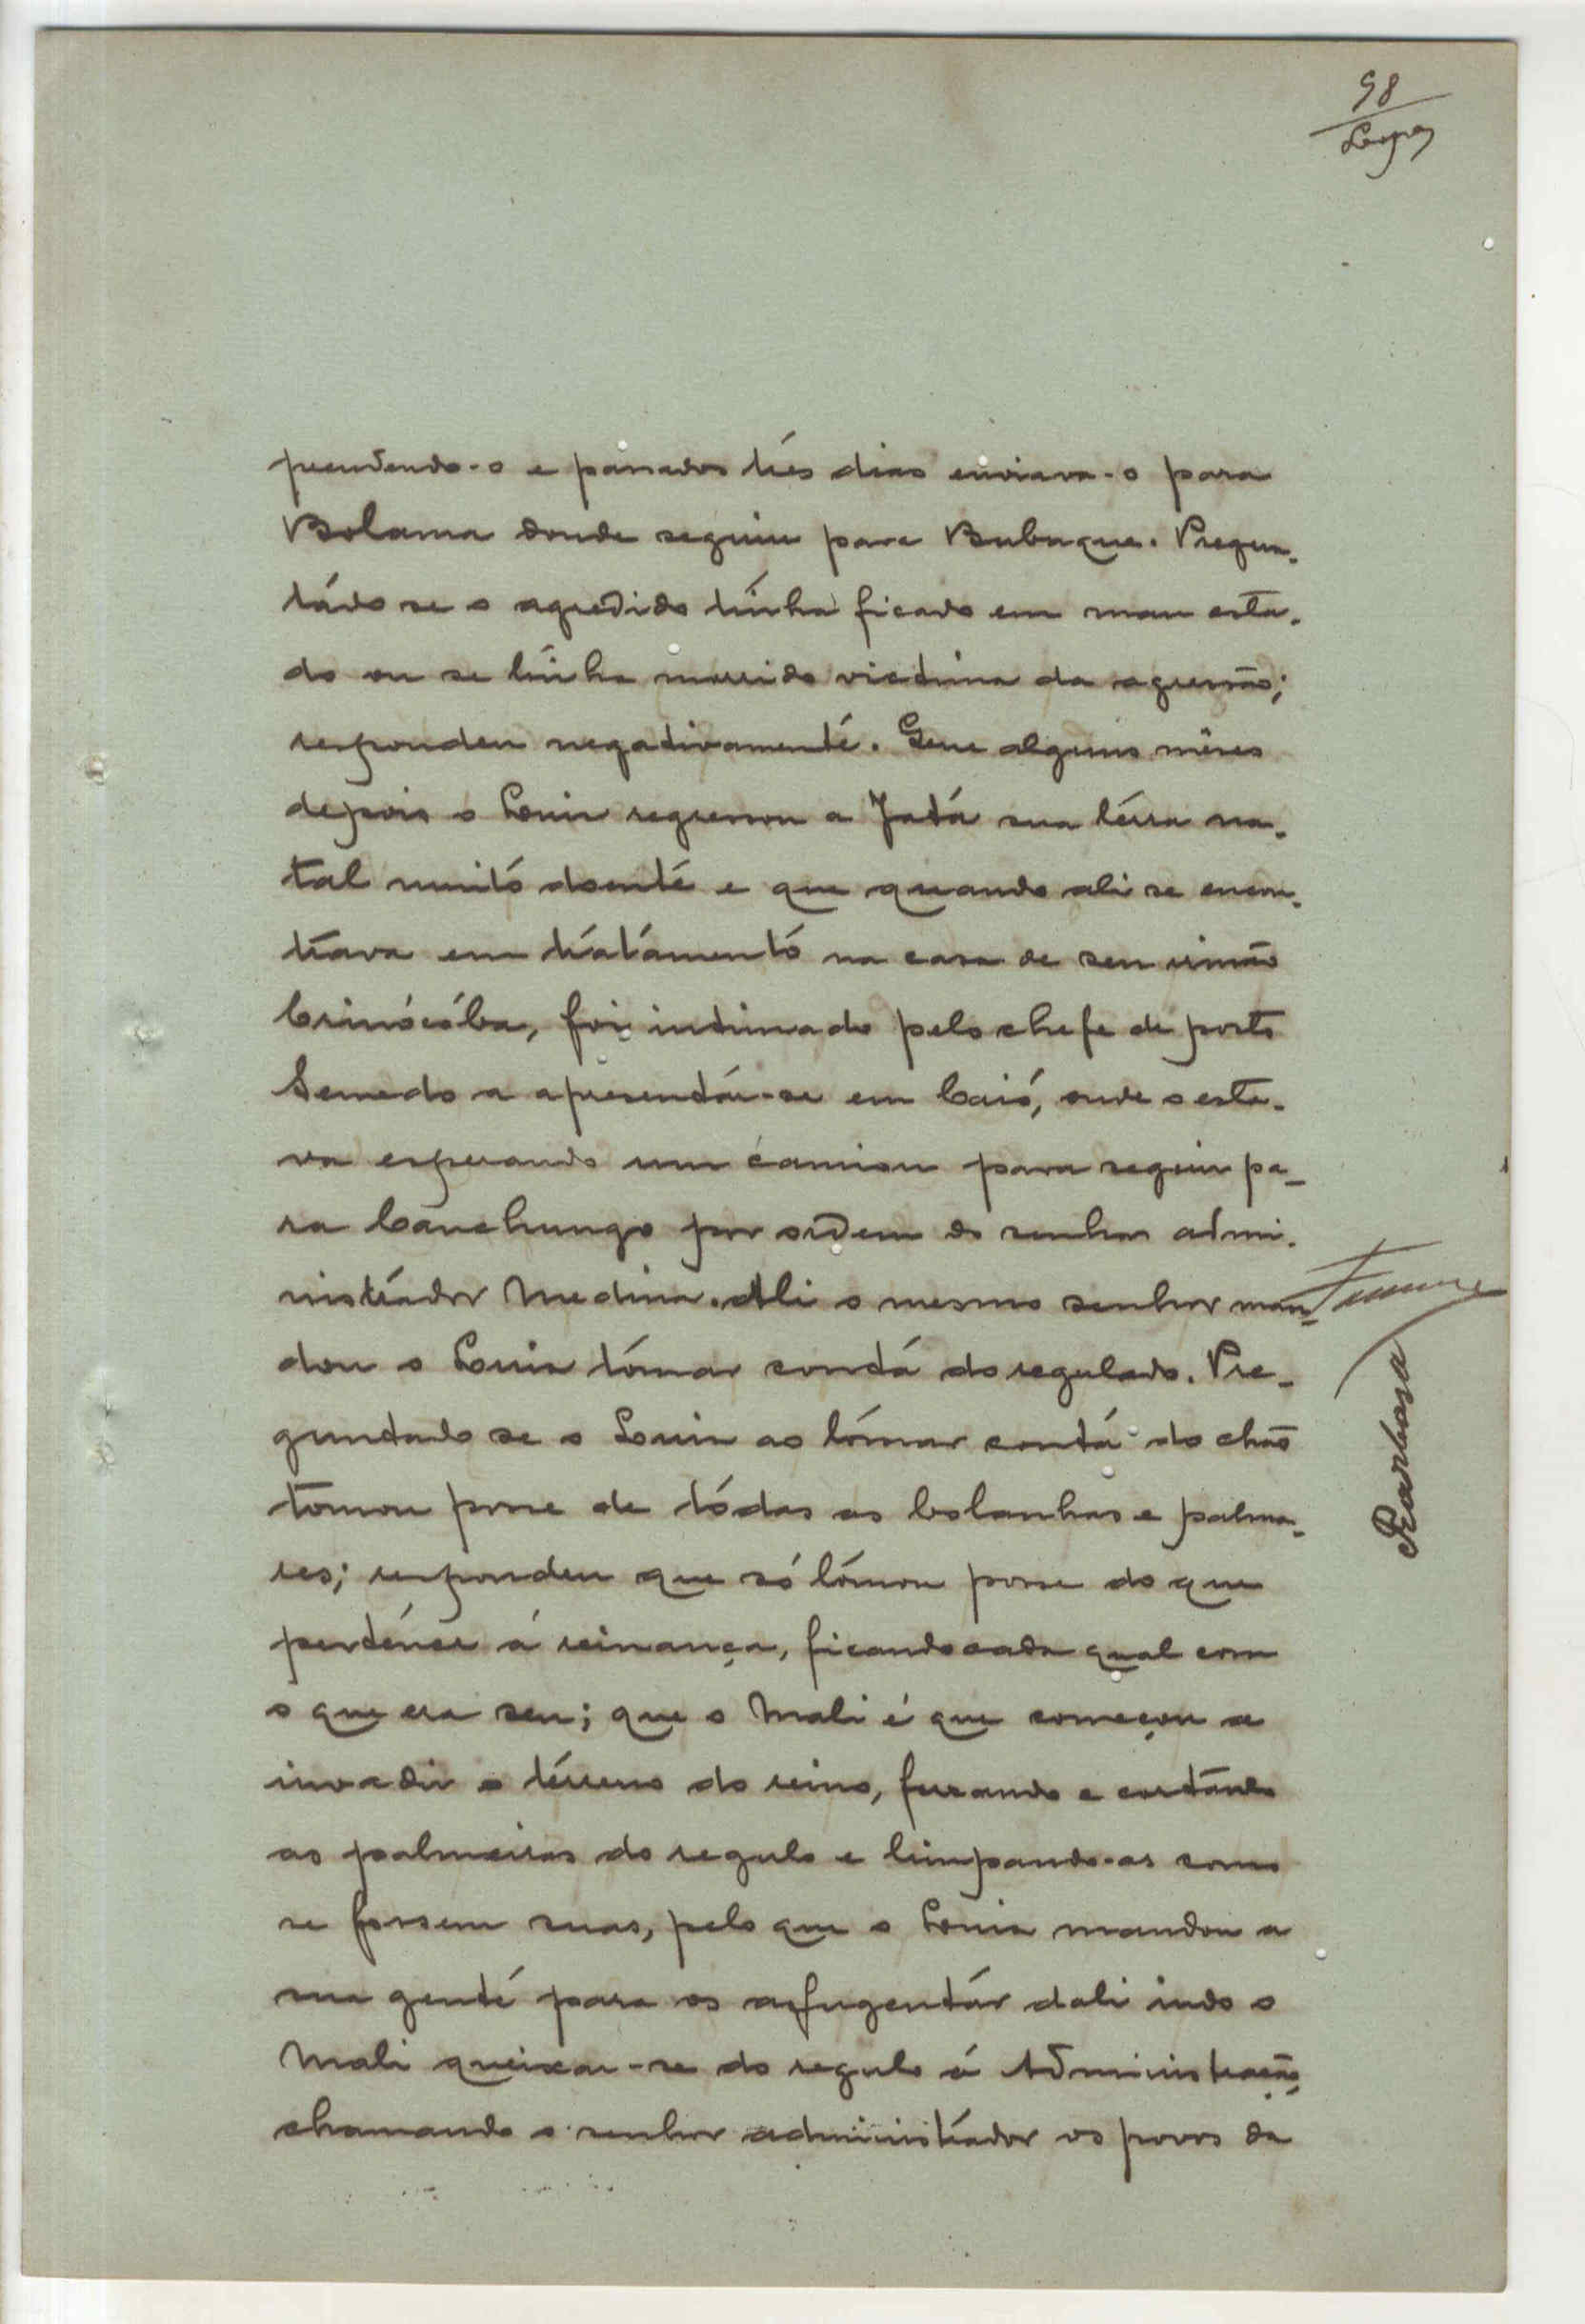 98
Lopes
prendendo-o e passados três dias enviava-o para
Bolama donde seguiu para Bubaque. Pregun-
tádo se o agredido tinha ficado em mau esta-
do ou se tinha morrido victima da agressão;
respondeu negativamente. Que alguns mêses
depois o Louis regressou a Jatá sua térra na-
tal muitó doenté e que quando ali se encon-
tráva em tratámentó na casa de seu irmão
Crinócóba, foi intimado pelo chefe de posto
Semedo a apresentár-se em Caió, onde o esta-
va esperando um camion para seguir pa-
ra Canchungo por ordem do senhor admi-
nistrádor Medina. Ali o mesmo senhor man-
dou o Louis tómar contá do regulado. Pre-
guntado se o Louis ao tómar contá do chão
tomou posse de tódas as bolanhas e palma-
res; respondeu que só tómou posse do que
perténce á reinança, ficando cada qual com
o que era seu; que o Mali é que começou a
invadir o térreno do reino, furando e cortándo
as palmeiras do regulo e limpando-as como
se fossem suas, pelo que o Louis mandou a
sua genté para os afugentár dali indo o
Mali queixar-se do regulo á Administração,
chamando o senhor administrádor os povos da
Barbosa